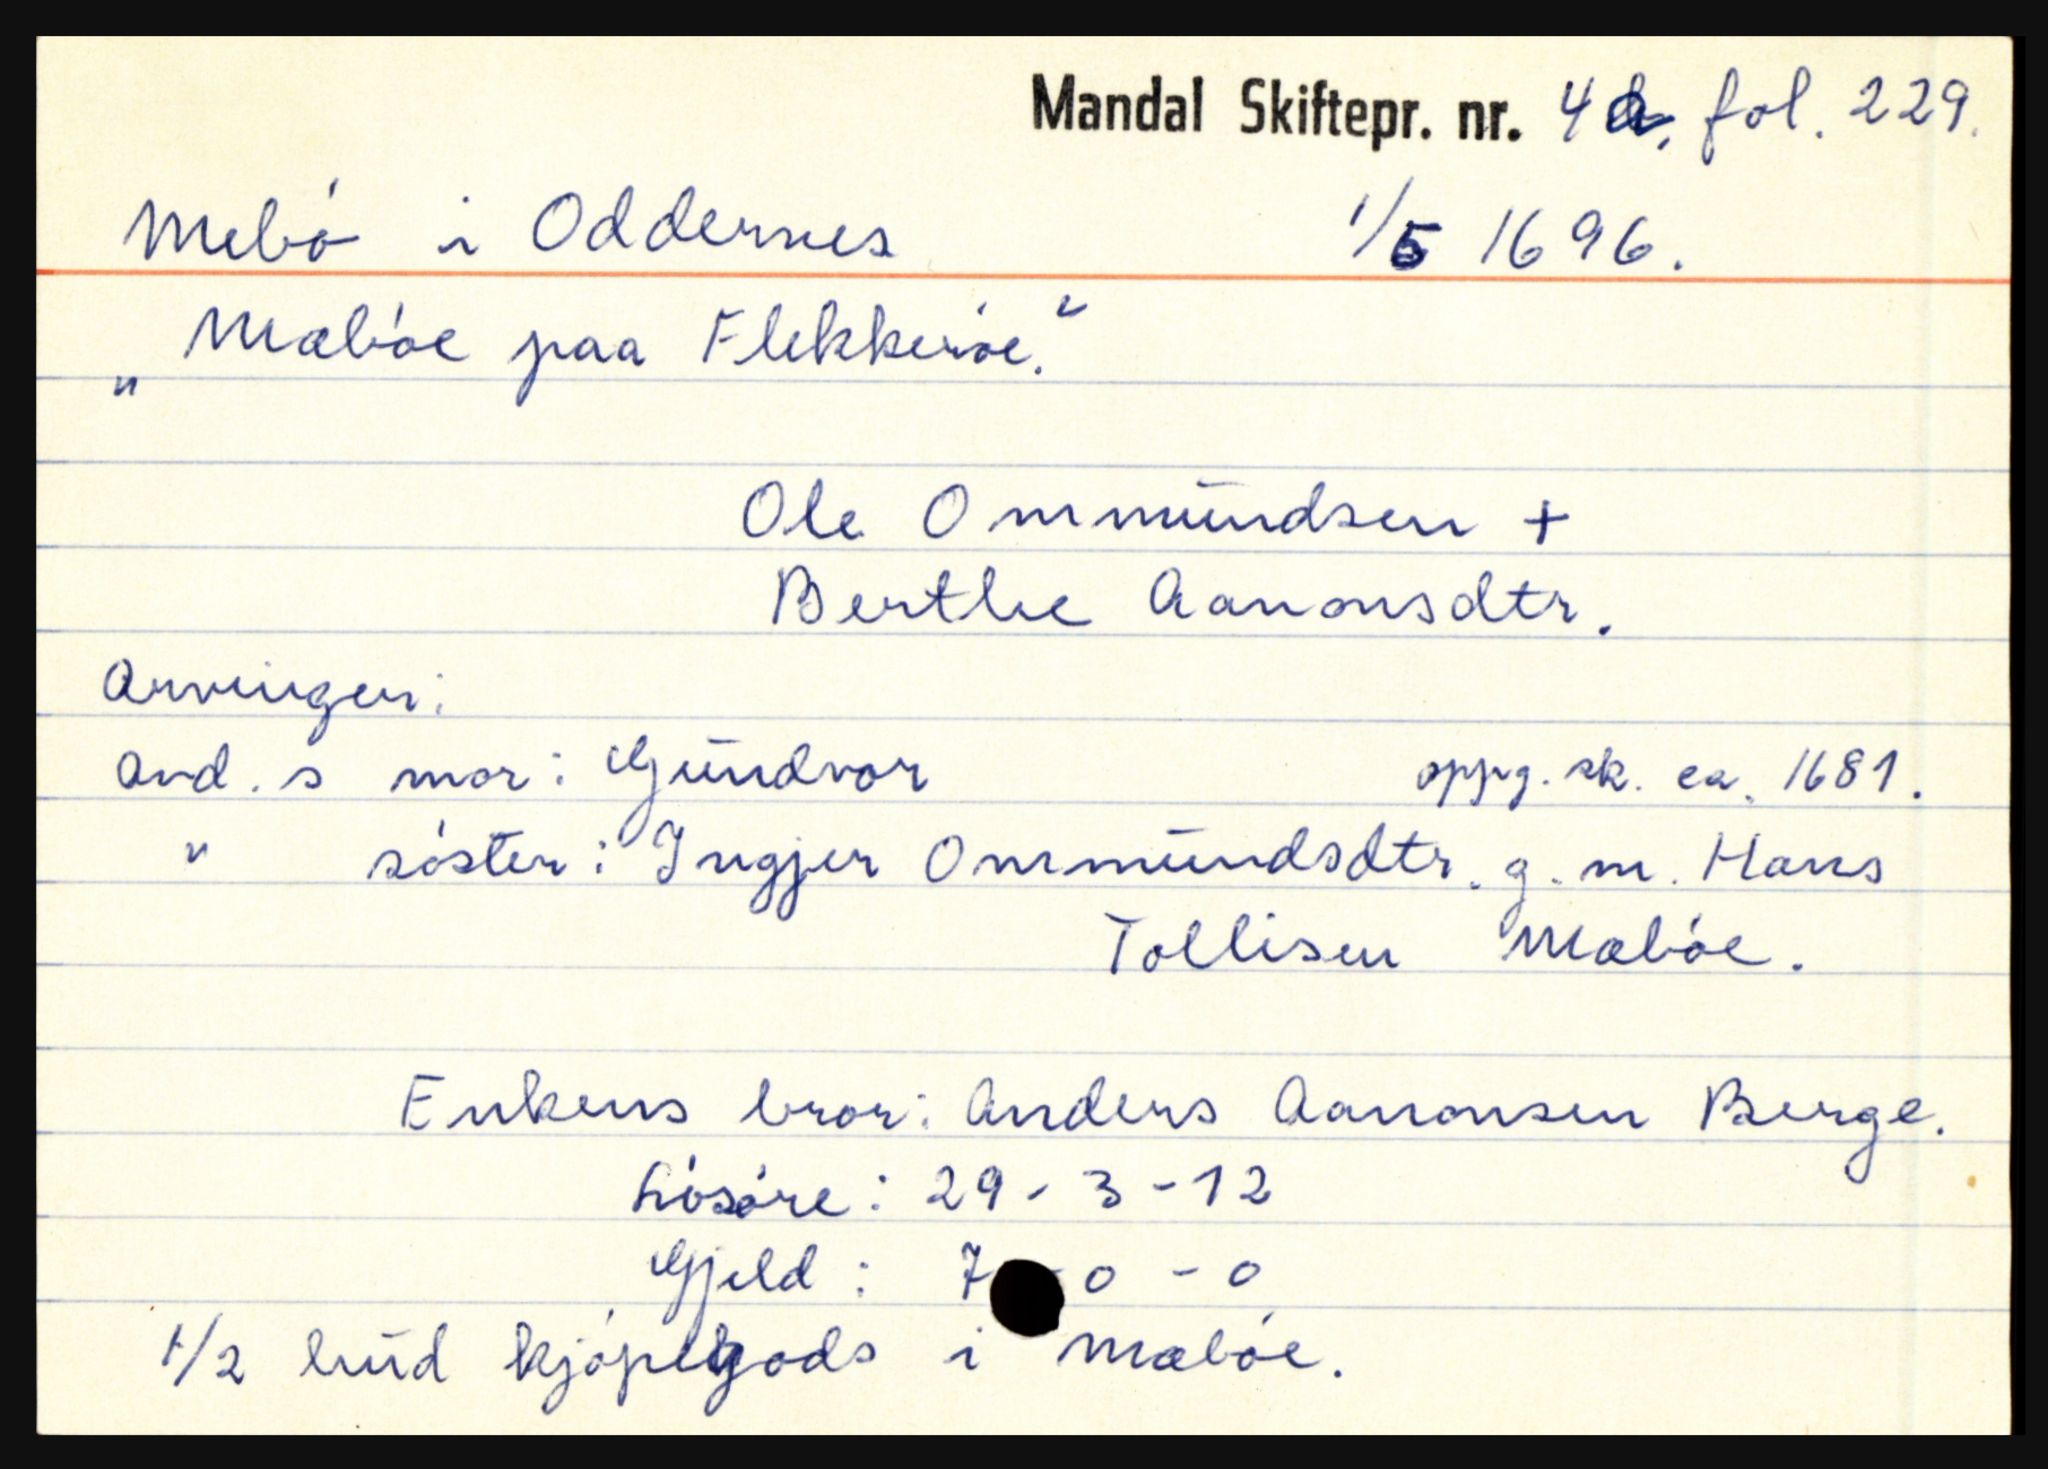 Mandal Skiftepr. nr. 4a, fol. 229.
Mebø i Oddernes 1/5 1696.
„Mæbøe paa Flekkerøe."
Ole Ommundsen +
Berthe Aanonsdtr.
Arvinger:
Avd. s mor: Gundvor oppg. sk. ca. 1681.
" søster: Ingjer Ommundsdtr. g. m. Hans
Tollisen Mæbøe.
Enkens bror: Anders Aanonsen Berge.
Løsøre: 29 - 3 - 12
Gjeld: 7 - 0 - 0
1/2 hud kjøpegods i Mæbøe.